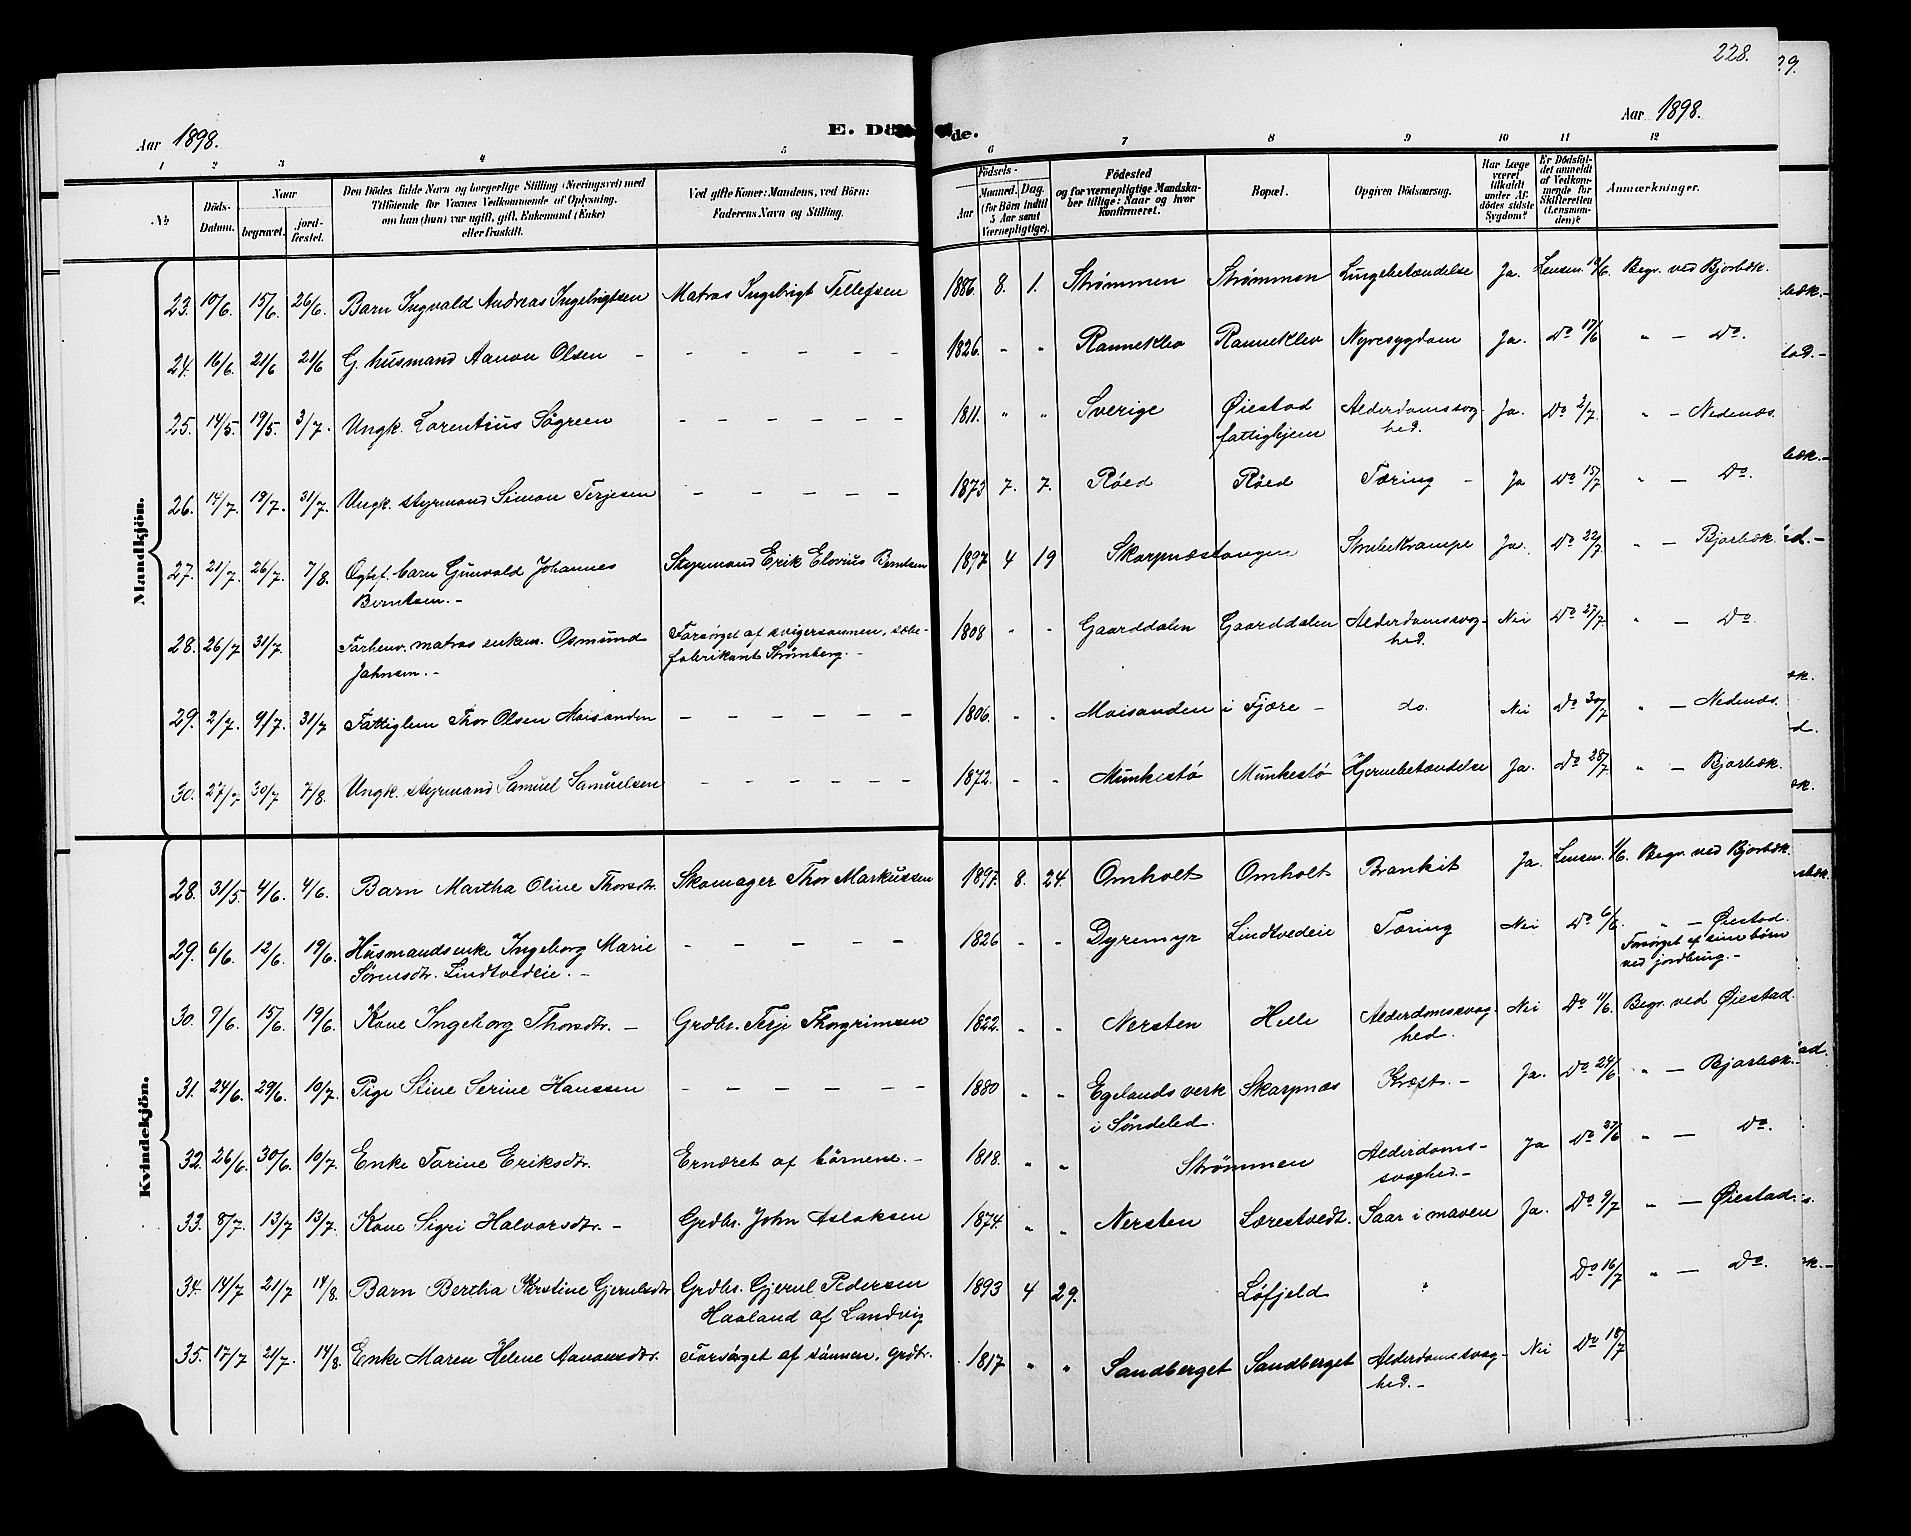 228.
29.
Aar 1898.
E. Dö de.
Aar 1898.
1 2 3 4 5 6 7 8 9 10 11 12
No
Döds-Datum.
Naar
begravet.
jord-fæstet.
Den Dödes fulde Navn og borgerlige Stilling (Næringsvei) med
Tilföiende for Voxnes Vedkommende af Oplysning,
om han (hun) var ugift, gift, Enkemand (Enke)
eller fraskilt.
Ved gifte Koner: Mandens, ved Börn:
Faderens Navn og Stilling.
Födsels-
Aar
Maaned. Dag.
(for Börn indtil
5 Aar samt
Værnepligtige).
Födested
og for værnepligtige Mandska-
ber tillige: Naar og hvor
konfirmeret.
Bopæl.
Opgiven Dödsaarsag.
Har Læge
været
tilkaldt
under Af-
dödes sidste
Sygdom?
Er Dödsfal-
det anmeldt
af Vedkom-
mende for
Skifteretten
(Lensman-
den)?
Anmærkninger.
Mandkjön.
23. 10/6. 15/6. 26/6. Barn Ingvald Andreas Ingebrigtsen Matros Ingebrigt Tellefsen 1886. 8. 1. Strømmen Strømmen Lungebetændelse Ja. Lensm. 12/6. Begr. ved Bjorbæk.
24. 16/6. 21/6 21/6 G. husmand Aanon Olsen - - - - - - 1826. " " Ranneklev Ranneklev Nyresygdom Ja. Do 17/6 " - Do.
25. 14/5. 19/5. 3/7. Ungk. Lorentius Søgreen - - - - - 1811. " " Sverige Øiestad Alderdomssvag- Ja. Do 2/7. " - Nedenæs.
fattighjem hed.
26. 14/7. 19/7. 31/7. Ungk. styrmand Simon Terjesen - - - - - 1873 7. 7. Røed Røed Tæring - Ja Do 15/7 " - Do
27. 21/7. 26/7. 7/8. Ogbf. barn Gunvald Johannes Styrmand Erik Elovius Berntsen 1897 4 19 Skarpnæstangen Strubekrampe Ja. Do 22/7 " - Bjorbæk
Berntsen. -
28. 26/7 31/7. Forhenv. matros enkem. Osmund Forsørget af svigersønnen, sæbe- 1808 " " Gaarddalen Gaarddalen Alderdomssvag- Nei Do 27/7 " - Do
Jahnsen. - fabrikant Strømberg. - hed.
29. 2/7. 9/7. 31/7 Fattiglem Thor Olsen Moisanden - - - - - - 1806. " " Moisanden i Fjære - do. Nei Do 30/7 " - Nedenæs.
30. 27/7. 30/7 7/8. Ungk. styrmand Samuel Samuelsen - - - - - 1872. " " Munkestø Munkestø Hjernebetændelse Ja. Do 28/7 " - Bjorbæk.
Kvindekjön.
28. 31/5. 4/6. 4/6. Barn Martha Oline Thorsdtr. Skomager Thor Markussen 1897. 8. 24. Omholt Omholt Brankit Ja. Lensm. 1/6. Begr. ved Bjorbæk
29. 6/6. 12/6. 19/6. Husmandsenke Ingeborg Marie - - - - - 1826 - - Dyremyr Lindtvedeie Tæring Nei Do 6/6. " - Øiestad.
Sørensdtr. Lindtvedeie. - Forsørget af sine børn
ved jordbrug. -
30. 9/6. 15/6. 19/6. Kone Ingeborg Thorsdtr. - Grdbr. Terje Thorgrimsen 1822. " " Nersten Helle Alderdomssvag- Nei Do 11/6. Begr. ved Øiestad.
hed.
31. 24/6. 29/6. 10/7. Pige Stine Serine Hanssen - - - - - - 1880 " " Egelands verk Skarpnæs Kræft. - Ja. Do 24/6 " - Bjorbæk.
i Søndeled.
32. 26/6. 30/6. 10/7. Enke Torine Eriksdtr. Ernæret af børnene. - 1818. " " Strømmen Alderdoms- Ja Do 27/6 " - Do.
svaghed. -
33. 8/7. 13/7 13/7. Kone Sigri Halvorsdtr. - Grdbr. John Aslaksen 1874. " " Nersten Lærestvedt. Saar i maven Ja. Do 9/7 " - Øiestad.
34. 14/7 21/7 14/8. Barn Bertha Kirstine Gjerulsdtr. Grdbr. Gjerul Pedersen 1893 4 29. Løfjeld " Do 16/7 " - Do.
Haaland af Landvig
35. 17/7 21/7. 14/8. Enke Maren Helene Aanonsdtr. Forsørget af sønnen. grdbr. 1817 " " Sandberget Sandberget Alderdomssvag- Nei Do 18/7
hed. -